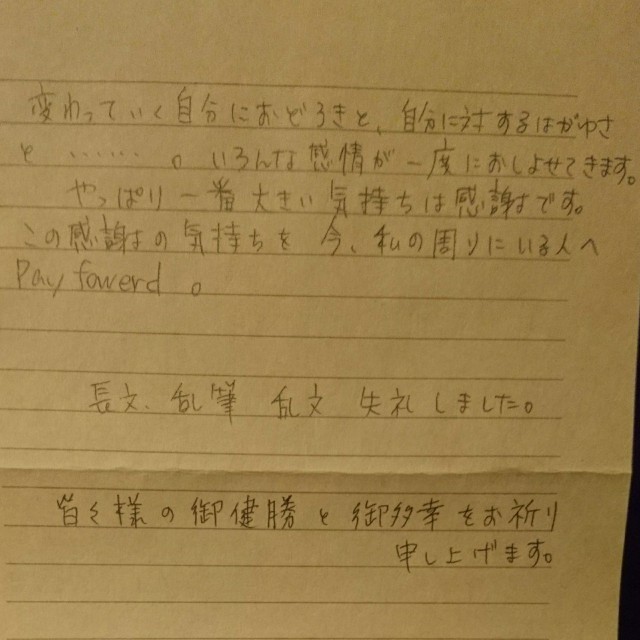 変わっていく自分におどろきと、自分に対するはがゆさ
と ‥‥‥ 。いろんな感情が一度におしよせてきます。
やっぱり一番大きい気持ちは感謝です。
この感謝の気持ちを 今、私の周りにいる人へ
Pay fowerd 。
長文、乱筆 乱文 失礼しました。
皆々様の御健勝と御多幸をお祈り
申し上げます。